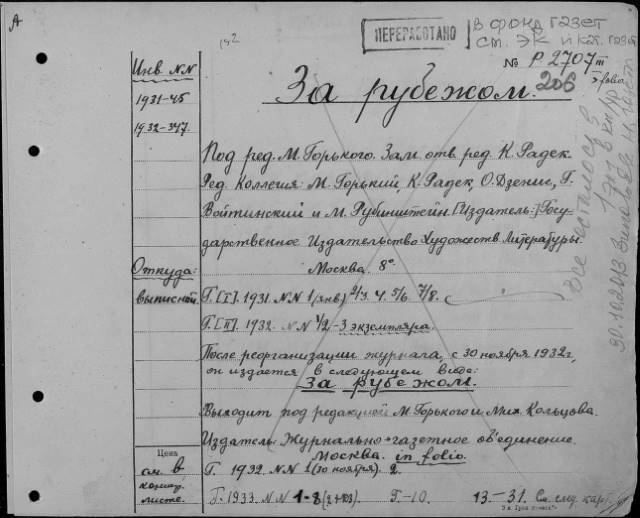 А
ПЕРЕРАБОТАНО
В ФОНД ГАЗЕТ
СМ. ЭК И КАТ. ГАЗЕТ
Инв NN
1931-45
1932-347.
№ Р 2707 III
folio
206
За рубежом.
Под ред. М. Горького. Зам. отв. ред. К. Радек.
Ред. Коллегия: М. Горький, К. Радек, О. Дзенис, Г.
Войтинский и М. Рубинштейн. [Издатель:] Госу-
дарственное Издательство Художеств. Литературы.
Москва. 8°
Откуда:
выписной.
Г. [I]. 1931. NN 1 (янв) 2/3. 4. 5/6 7/8.
Г. [II]. 1932. NN 1/2 -3 экземпляра.
После реорганизации журнала, с 30 ноября 1932 г.,
он издается в следующем виде:
За рубежом.
Выходит под редакцией М. Горького и Мих. Кольцова.
Издатель: Журнально-газетное об'единение.
Москва. in folio.
Г. 1932. NN 1 (30 ноября). 2.
Г. 1933. NN 1-8 Г-10. 13-31. См. след. карт.
Цена
см. в
листе.
все
30.10.2013